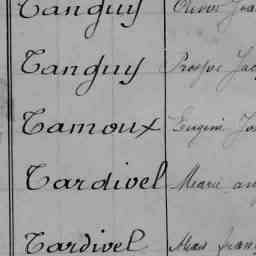 Tanguy Olivier Jea
Tanguy Prosper Jac
Tamoux Eugène Jo
Tardivel Marie an
Tardivel Marie fran